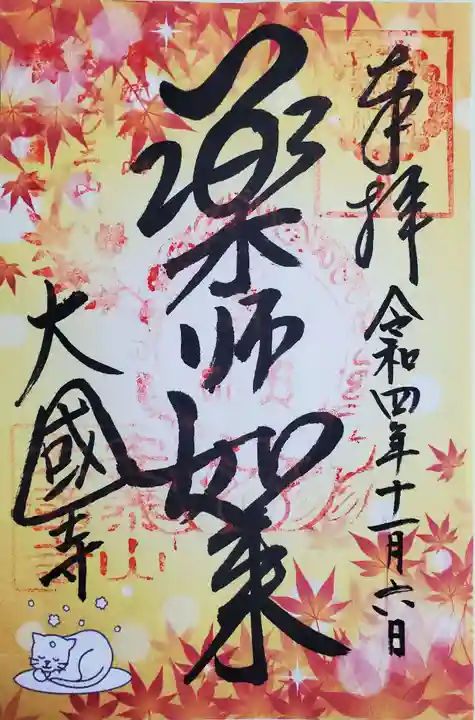 奉拝
令和四年十一月六日
薬师如来
大國寺